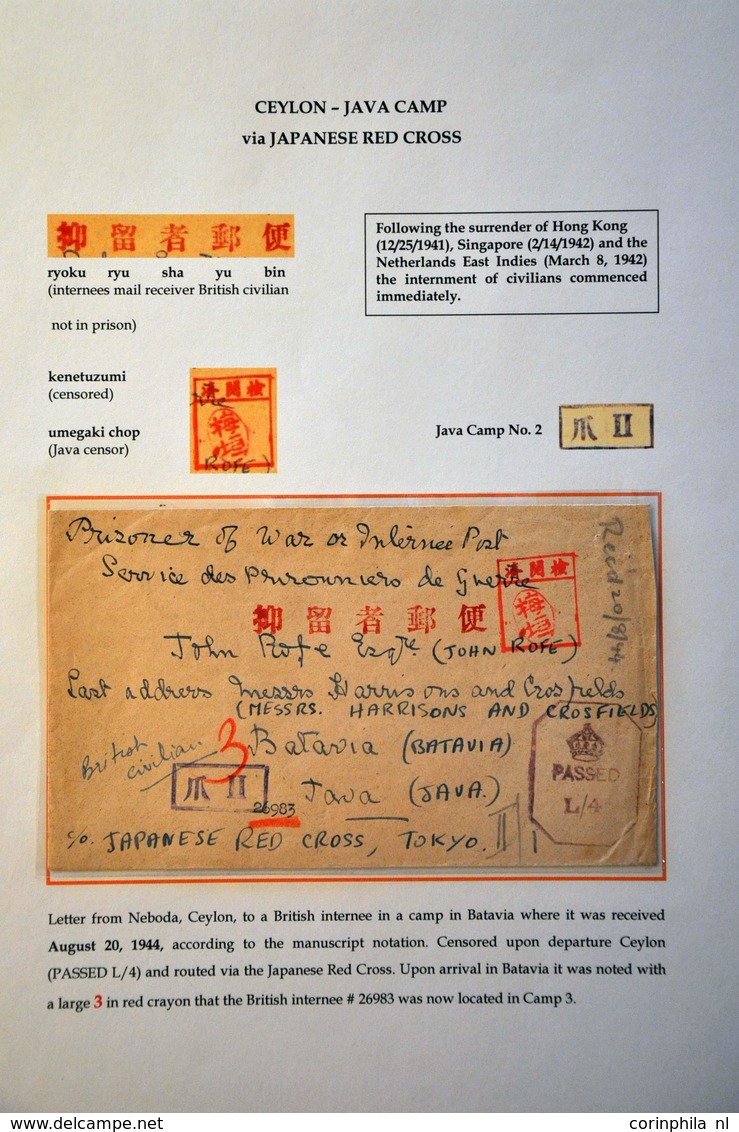 CEYLON – JAVA CAMP
via JAPANESE RED CROSS
抑留者郵便
ryoku ryu sha yu bin
(internees mail receiver British civilian
not in prison)
Following the surrender of Hong Kong
(12/25/1941), Singapore (2/14/1942) and the
Netherlands East Indies (March 8, 1942)
the internment of civilians commenced
immediately.
kenetuzumi
(censored)
umegaki chop
(Java censor)
済閲検
梅垣
ROFE)
Java Camp No. 2
爪 II
Prisoner of War or Internee Post
Service des Prisonniers de Guerre
済閲検
梅垣
抑留者郵便
John Rofe Esqre (JOHN ROFE)
Last address Messrs Harrisons and Crosfields
(MESSRS. HARRISONS AND CROSFIELDS)
British
civilian
3
Batavia (BATAVIA)
爪 II
26983
Java (JAVA.)
c/o. JAPANESE RED CROSS, TOKYO.
PASSED
L/4
Recd 20/8/44
Letter from Neboda, Ceylon, to a British internee in a camp in Batavia where it was received
August 20, 1944, according to the manuscript notation. Censored upon departure Ceylon
(PASSED L/4) and routed via the Japanese Red Cross. Upon arrival in Batavia it was noted with
a large 3 in red crayon that the British internee # 26983 was now located in Camp 3.
www.delcampe.net
corinphila nl